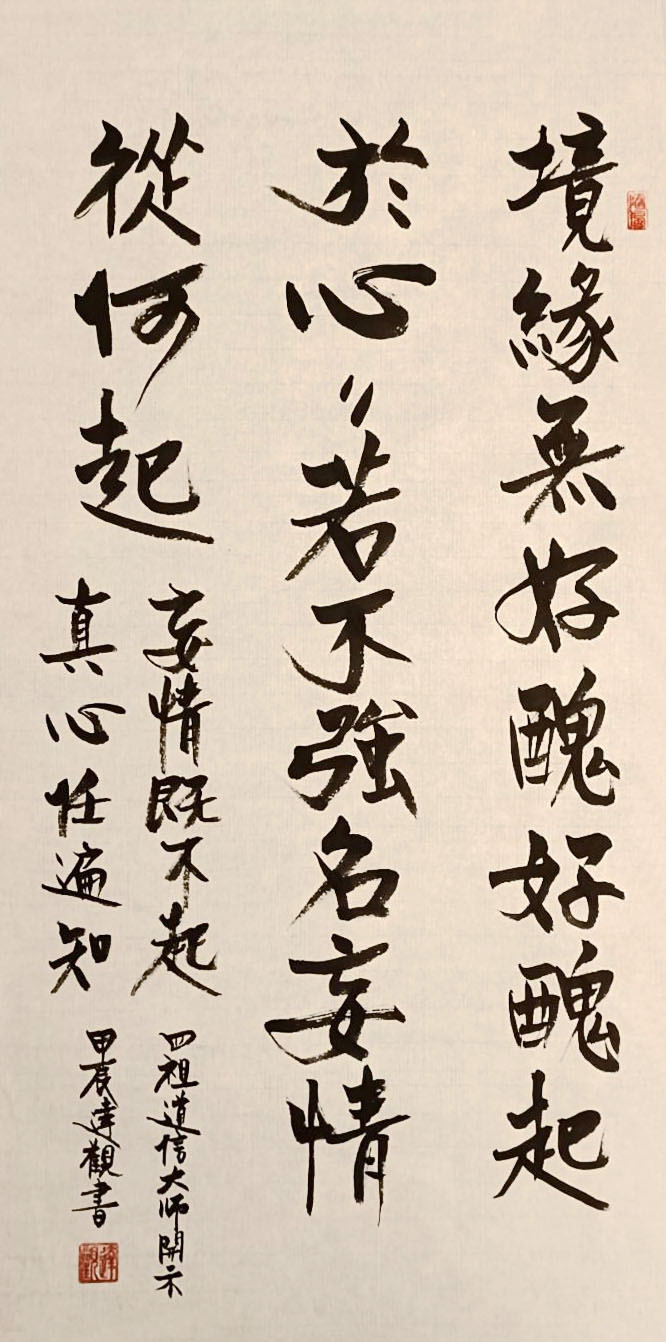 境緣無好醜好醜起
於心〃若不強名妄情
從何起
妄情既不起
真心任遍知
四祖道信大师開示
甲辰達觀書